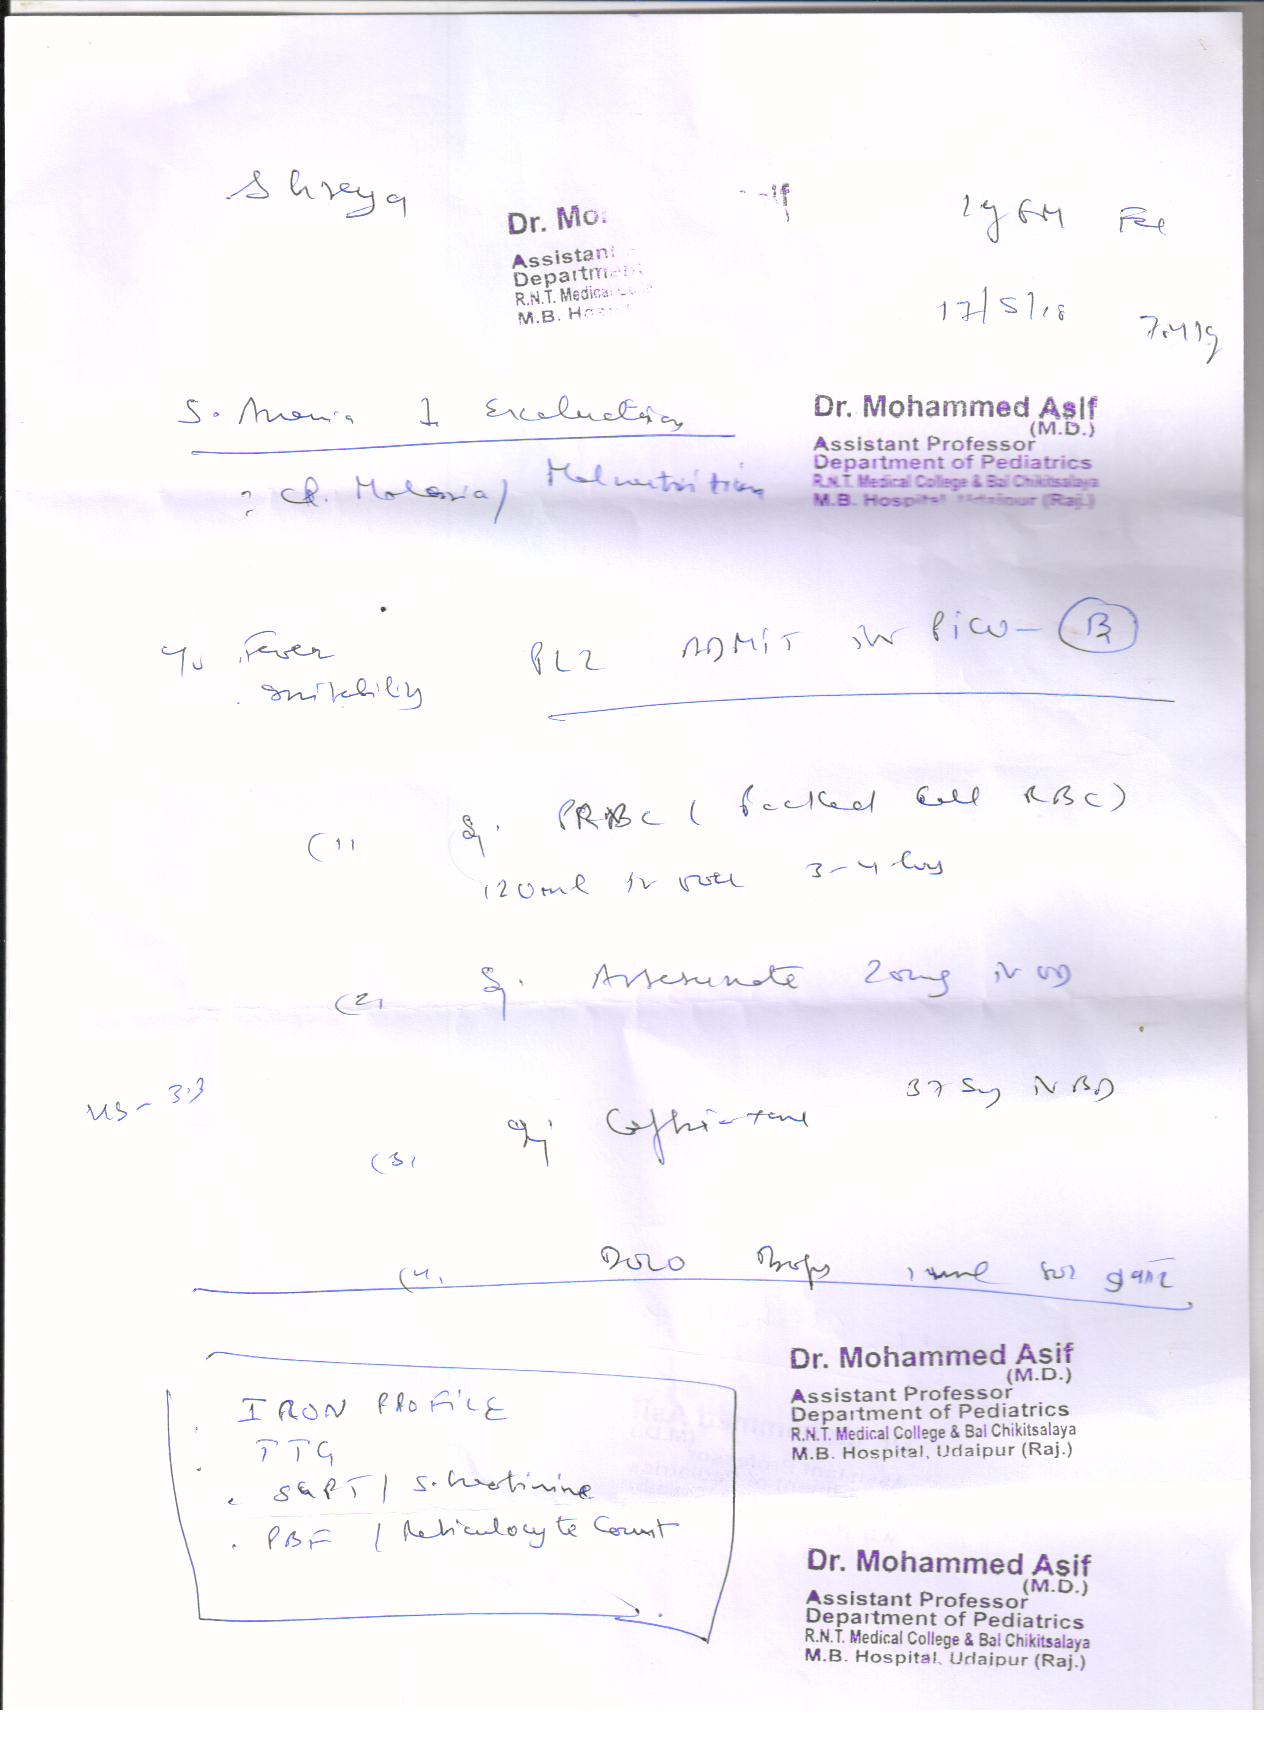 Shreya
Dr. Mo
1y 6M Fe
Assistan
Departm
R.N.T. Medica
M.B. H
17/5/18
S. Anemia Evaluation
Dr. Mohammed Asif
(M.D.)
Assistant Professor
Department of Pediatrics
R.N.T. Medical College & Bal Chikitsalaya
M.B. Hospital, Udaipur (Raj.)
? Malaria / Malnutrition
Fever
PLZ ADMIT in PICU - B
(1) PRBC ( Packed Cell RBC)
120ml IV over 3-4 hrs
(2) Artesunate 20mg IV OD
(3) 375mg IV BD
(4) DOLO Drops 1ml
Dr. Mohammed Asif
(M.D.)
Assistant Professor
Department of Pediatrics
R.N.T. Medical College & Bal Chikitsalaya
M.B. Hospital, Udaipur (Raj.)
. IRON PROFILE
. TTG
. SGPT / S. Creatinine
. PBF / Reticulocyte Count
Dr. Mohammed Asif
(M.D.)
Assistant Professor
Department of Pediatrics
R.N.T. Medical College & Bal Chikitsalaya
M.B. Hospital, Udaipur (Raj.)